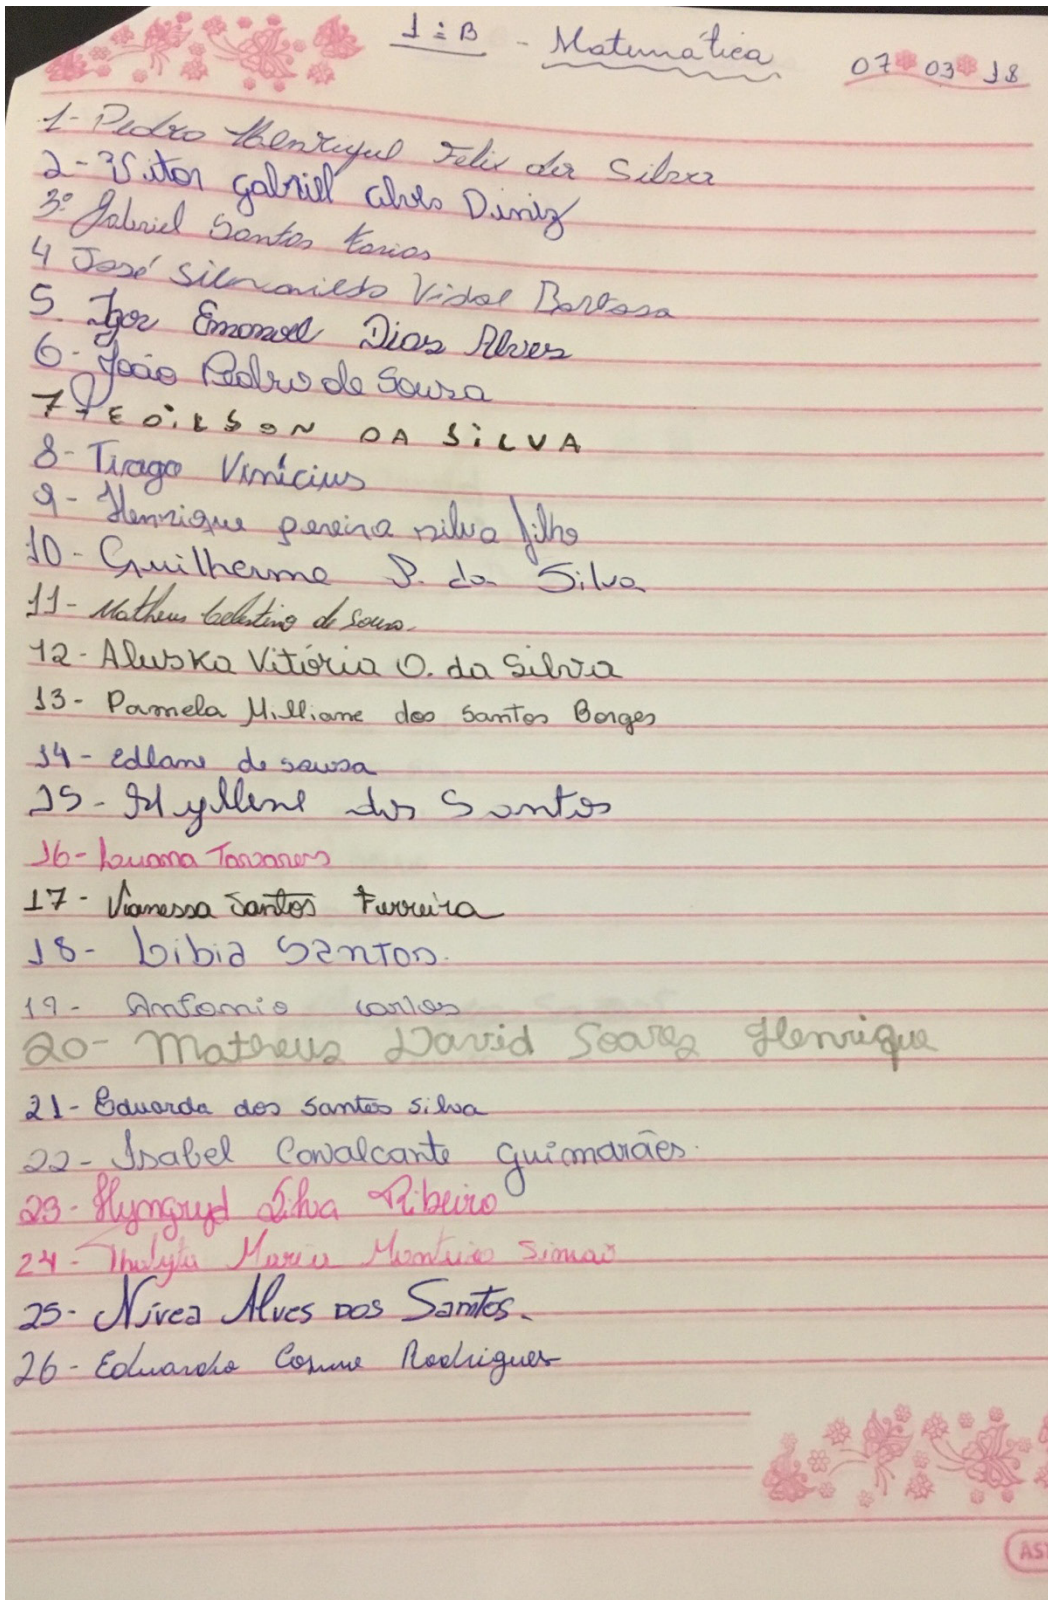 1º B - Matemática 07 03 18
1- Pedro Henrique Felix da Silva
2- Vitor gabriel alves Diniz
3º Gabriel Santos Farias
4 José Silvanildo Vidal Barbosa
5. Igor Emanoel Dias Alves
6- João Pedro de Sousa
7 DA SiLVA
8- Tiago Vinícius
9- Henrique pereira silva filho
10- Guilherme P. da Silva
11- Matheus Celestino de Sousa.
12- Aluska Vitória O. da Silva
13- Pamela Milliane dos Santos Borges
14- Edlane de sousa
15- dos Santos
16- Luana Tavares
17- Vanessa Santos Ferreira
18- Libia Santos.
19- Antonio carlos
20- Matheus David Soares Henrique
21- Eduarda dos santos silva
22- Isabel Cavalcante Guimarães.
23- Hyngryd Silva Ribeiro
24- Thalyta Maria Monteiro Simão
25- Nívea Alves DOS Santos.
26- Eduardo Cosme Rodrigues